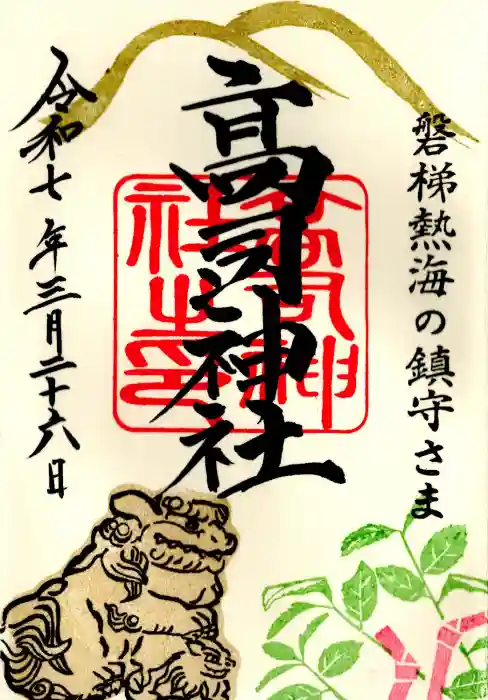 磐梯熱海の鎮守さま
高司神社
令和七年三月二十六日